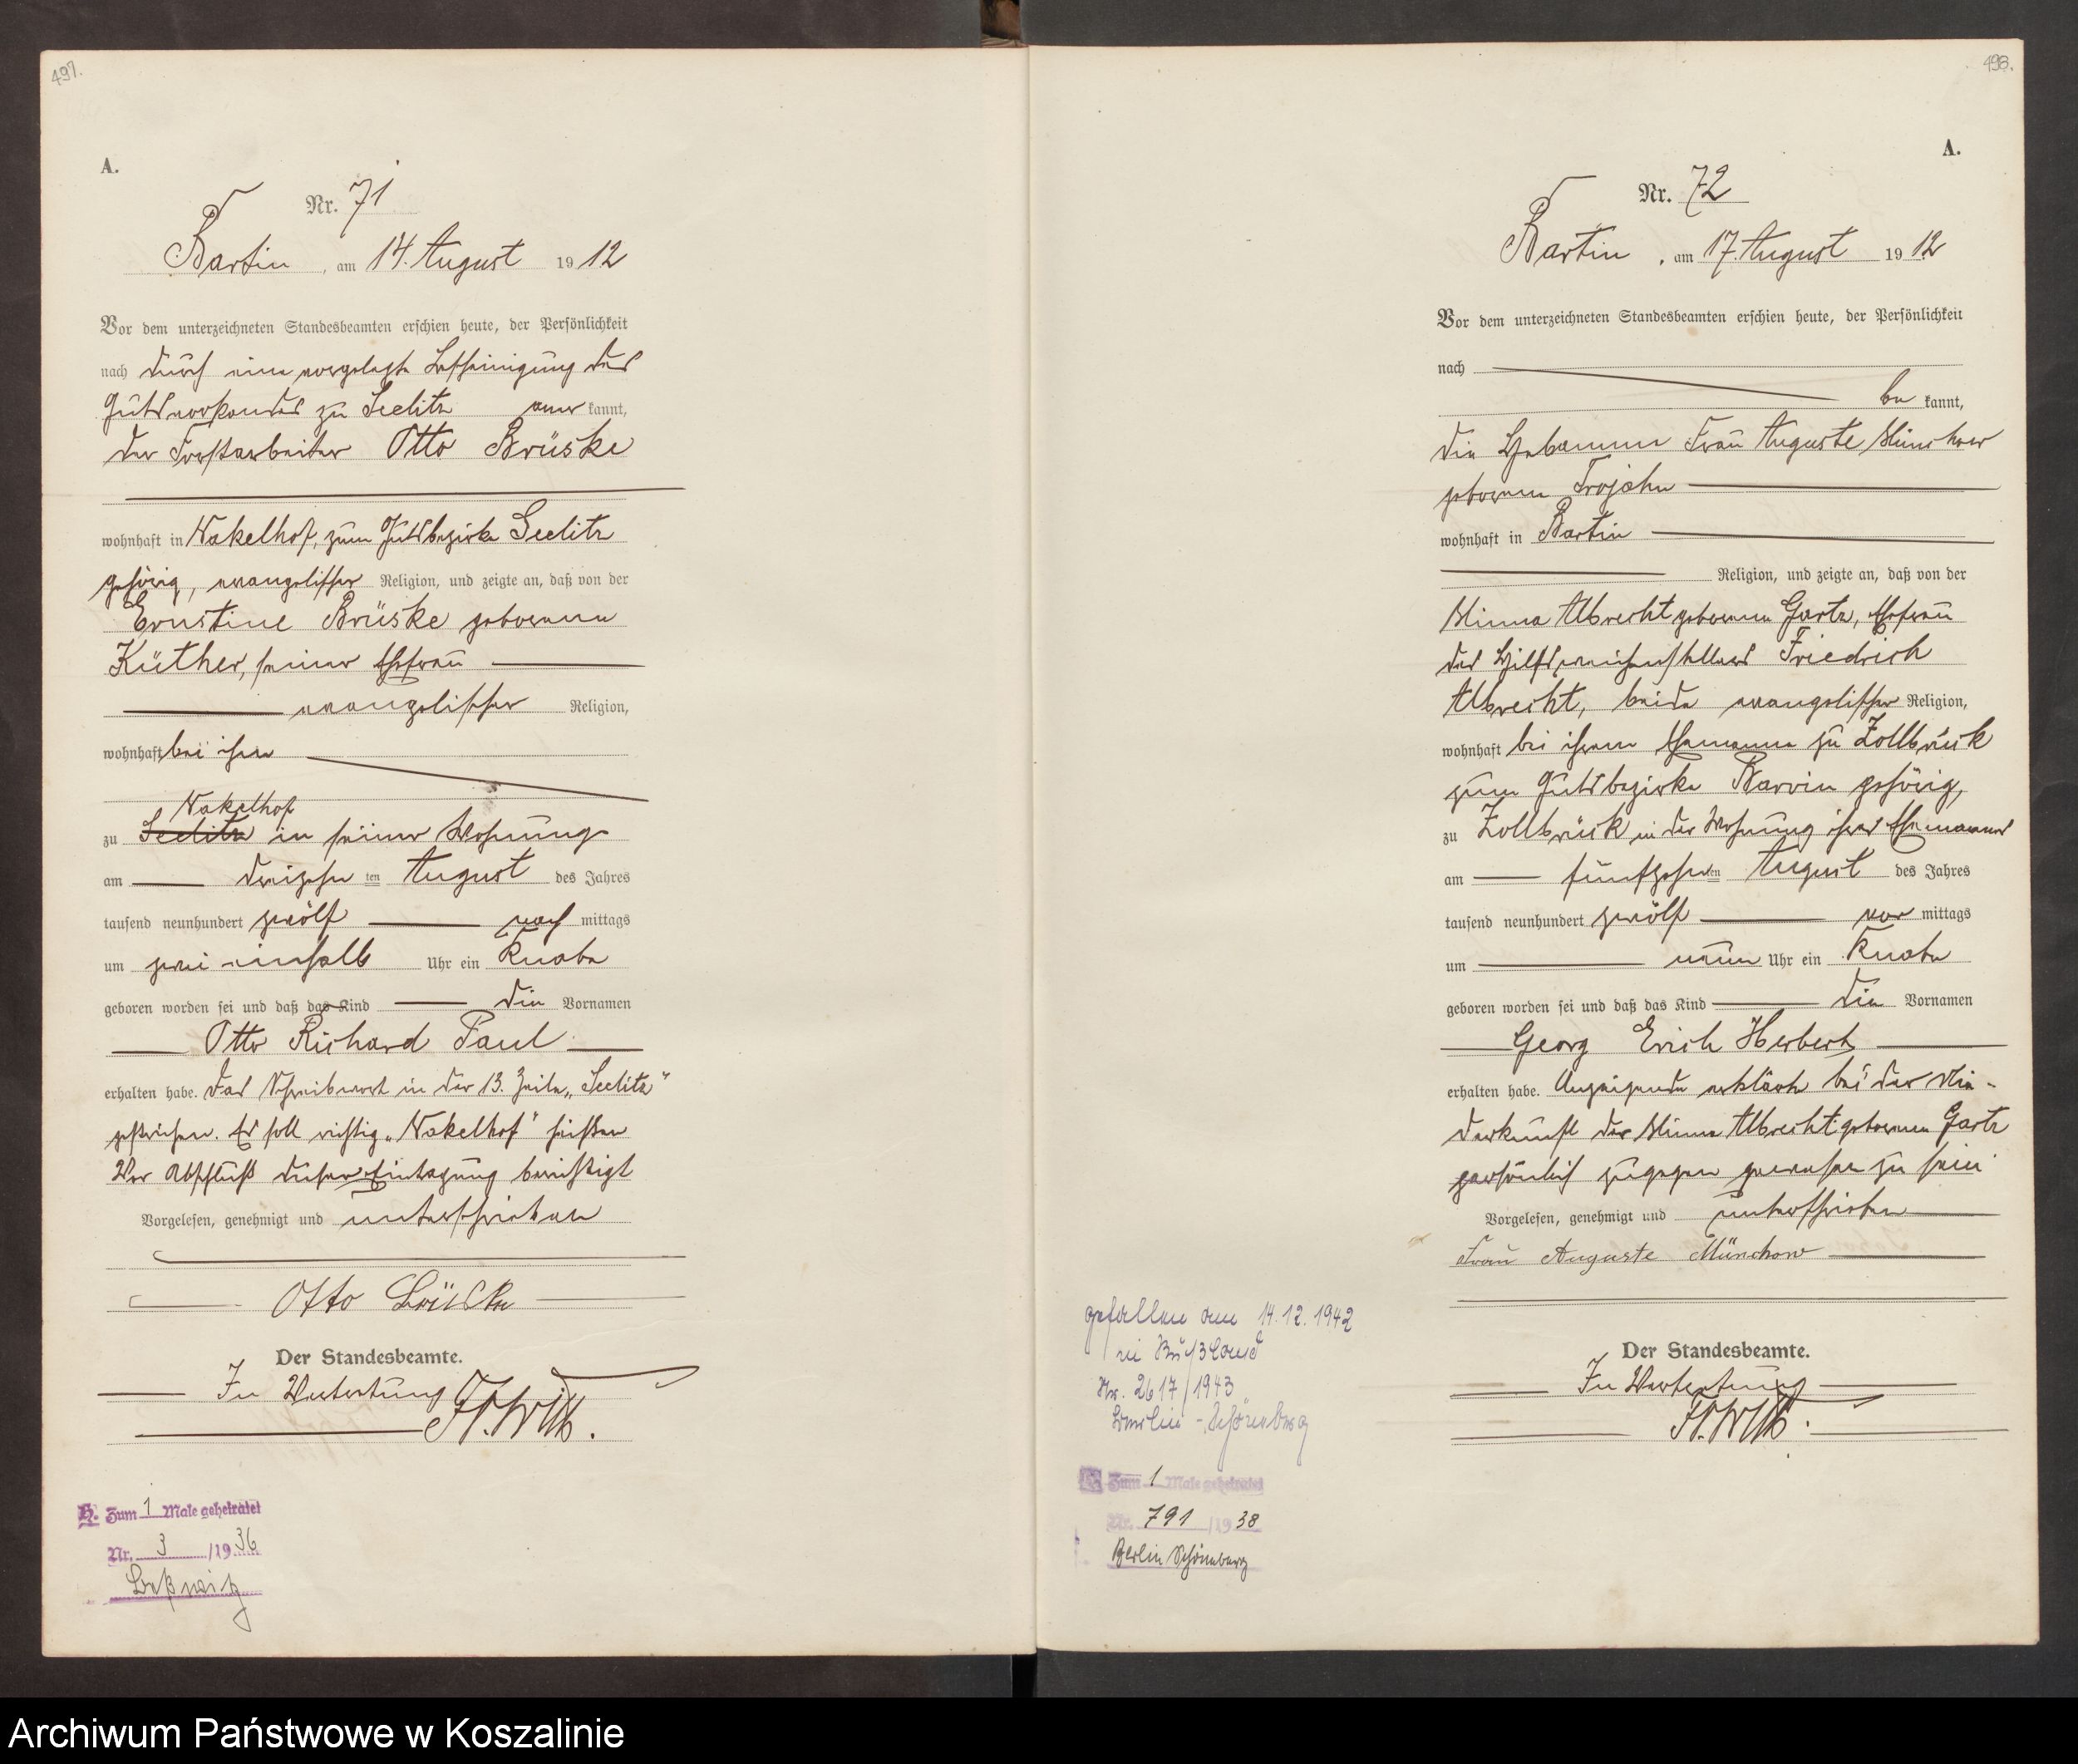 497.
A.
Nr. 71
Bartin, am 14. August 1912
Vor dem unterzeichneten Standesbeamten erschien heute, der Persönlichkeit
nach durch eine vorgelegte Bescheinigung des
Gutsvorstandes zu Seelitz aner kannt,
der Forstarbeiter Otto Brüske
wohnhaft in Nakelhof, zum Gutsbezirke Seelitz
gehörig, evangelischer Religion, und zeigte an, daß von der
Ernstine Brüske geborenen
Küther, seiner Ehefrau
evangelischer Religion,
wohnhaft bei ihm
Nakelhof
zu Seelitz in seiner Wohnung
am dreizehn ten August des Jahres
tausend neunhundert zwölf nach mittags
um zwei einhalb Uhr ein Knabe
geboren worden sei und daß das Kind die Vornamen
Otto Richard Paul
erhalten habe. Das Schreibwort in der 13. Zeile „Seelitz"
gestrichen. Es soll richtig „Nakelhof" heißen
Vor Abschluß dieser Eintragung berichtigt
Vorgelesen, genehmigt und unterschrieben
Otto Brüske
Der Standesbeamte.
In Vertretung
H. Zum 1 Male geheiratet
Nr. 3 /1936
498.
A.
Nr. 72
Bartin, am 17. August 1912
Vor dem unterzeichneten Standesbeamten erschien heute, der Persönlichkeit
nach
be kannt,
die Hebamme Frau Auguste Münchow
geborene Trojahn
wohnhaft in Bartin
Religion, und zeigte an, daß von der
Minna Albrecht geborenen Gartz, Ehefrau
des Hilfsweichenstellers Friedrich
Albrecht, beide evangelischer Religion,
wohnhaft bei ihrem Ehemanne zu Zollbrück
zum Gutsbezirke Barvin gehörig,
zu Zollbrück in der Wohnung ihres Ehemannes
am fünfzehn ten August des Jahres
tausend neunhundert zwölf vor mittags
um neun Uhr ein Knabe
geboren worden sei und daß das Kind die Vornamen
Georg Erich Herbert
erhalten habe. Anzeigende erklärte bei der Nie-
derkunft der Minna Albrecht geborenen Gartz
persönlich zugegen gewesen zu sein
Vorgelesen, genehmigt und unterschrieben
Frau Auguste Münchow
Der Standesbeamte.
In Vertretung
gefallen am 14.12.1942
in Rußland
Nr. 2617/1943
Berlin-Schöneberg
H. Zum 1 Male geheiratet
Nr. 791 /1938
Berlin Schöneberg
Archiwum Państwowe w Koszalinie